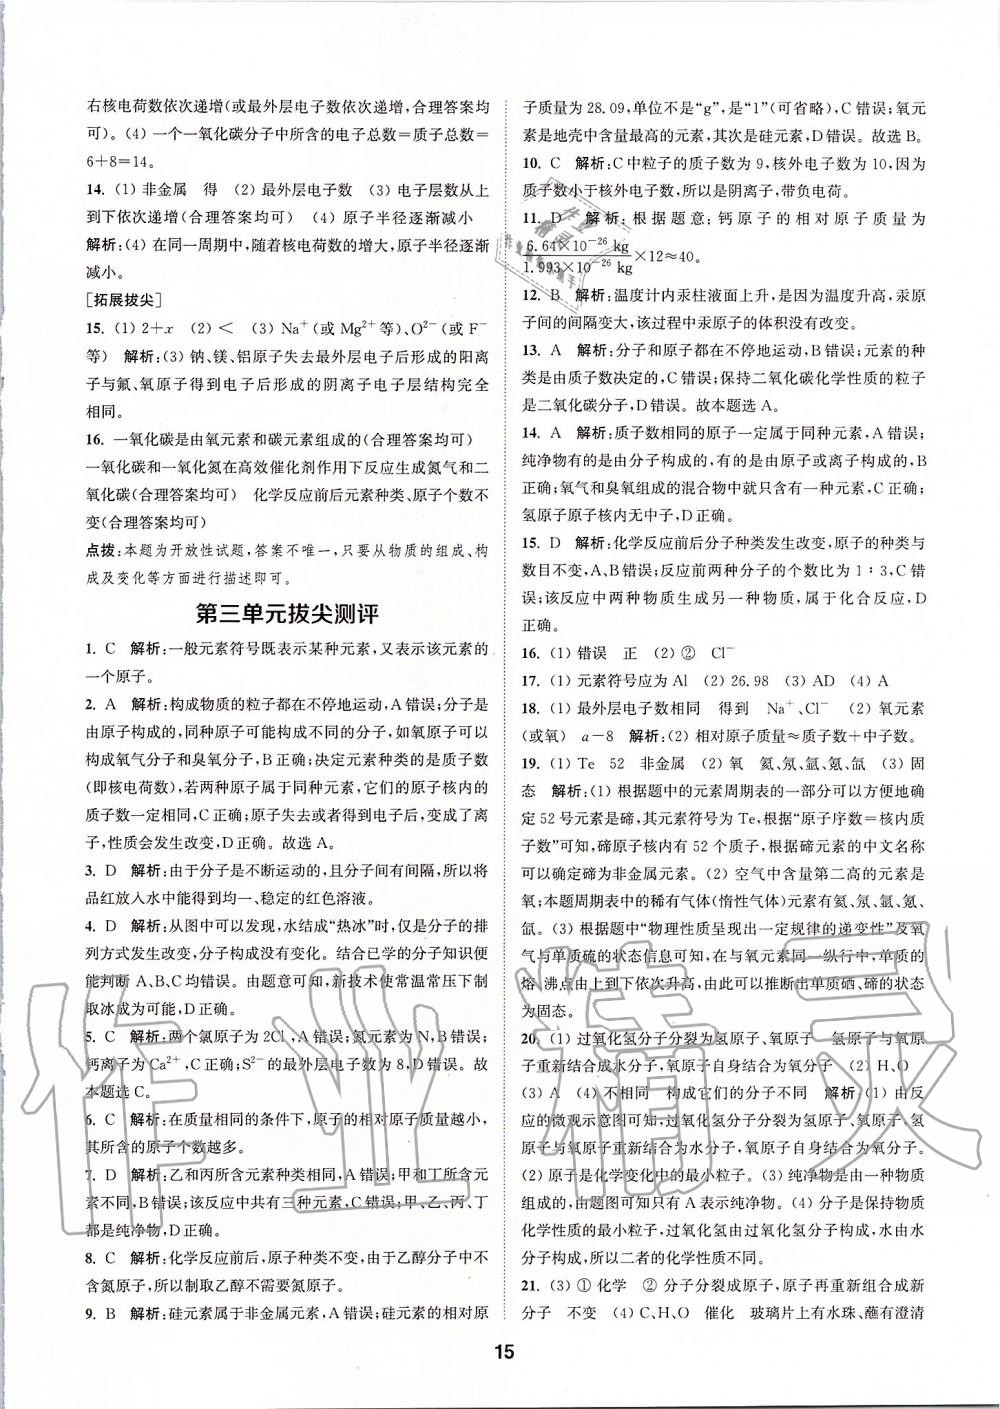 右核电荷数依次递增(或最外层电子数依次递增,合理答案均
可)。(4) 一个一氧化碳分子中所含的电子总数=质子总数=
6+8=14。
14. (1) 非金属 得 (2) 最外层电子数 (3) 电子层数从上
到下依次递增(合理答案均可) (4) 原子半径逐渐减小
解析:(4) 在同一周期中,随着核电荷数的增大,原子半径逐渐
减小。
[拓展拔尖]
15. (1) 2+x (2) < (3) Na⁺(或 Mg²⁺等)、O²⁻(或 F⁻
等) 解析:(3) 钠、镁、铝原子失去最外层电子后形成的阳离
子与氟、氧原子得到电子后形成的阴离子电子层结构完全
相同。
16. 一氧化碳是由氧元素和碳元素组成的(合理答案均可)
一氧化碳和一氧化氮在高效催化剂作用下反应生成氮气和二
氧化碳(合理答案均可) 化学反应前后元素种类、原子个数不
变(合理答案均可)
点拨:本题为开放性试题,答案不唯一,只要从物质的组成、构
成及变化等方面进行描述即可。
第三单元拔尖测评
1. C 解析:一般元素符号既表示某种元素,又表示该元素的
一个原子。
2. A 解析:构成物质的粒子都在不停地运动,A错误;分子是
由原子构成的,同种原子可能构成不同的分子,如氧原子可以
构成氧气分子和臭氧分子,B正确;决定元素种类的是质子数
(即核电荷数),若两种原子属于同种元素,它们的原子核内的
质子数一定相同,C正确;原子失去或者得到电子后,变成了离
子,性质会发生改变,D正确。故选A。
3. D 解析:由于分子是不断运动的,且分子间有间隔,所以将
品红放入水中能得到均一、稳定的红色溶液。
4. D 解析:从图中可以发现,水结成“热冰”时,仅是分子的排
列方式发生改变,分子构成没有变化。结合已学的分子知识便
能判断A、B、C均错误。由题意可知,新技术使常温常压下制
取冰成为可能,D正确。
5. C 解析:两个氯原子为2Cl,A错误;氮元素为N,B错误;
钙离子为Ca²⁺,C正确;S²⁻的最外层电子数为8,D错误。故
本题选C。
6. C 解析:在质量相同的条件下,原子的相对原子质量越小,
其所含的原子个数越多。
7. D 解析:乙和丙所含元素种类相同,A错误;甲和丁所含元
素不同,B错误;该反应中共有三种元素,C错误;甲、乙、丙、丁
都是纯净物,D正确。
8. C 解析:化学反应前后,原子种类不变,由于乙醇分子中不
含氮原子,所以制取乙醇不需要氮原子。
9. B 解析:硅元素属于非金属元素,A错误;硅元素的相对原
子质量为28.09,单位不是“g”,是“1”(可省略),C错误;氧元
素是地壳中含量最高的元素,其次是硅元素,D错误。故选B。
10. C 解析:C中粒子的质子数为9,核外电子数为10,因为
质子数小于核外电子数,所以是阴离子,带负电荷。
11. D 解析:根据题意:钙原子的相对原子质量为
6.64×10⁻²⁶ kg
1.993×10⁻²⁶ kg ×12≈40。
12. B 解析:温度计内汞柱液面上升,是因为温度升高,汞原
子间的间隔变大,该过程中汞原子的体积没有改变。
13. A 解析:分子和原子都在不停地运动,B错误;元素的种
类是由质子数决定的,C错误;保持二氧化碳化学性质的粒子
是二氧化碳分子,D错误。故本题选A。
14. A 解析:质子数相同的原子一定属于同种元素,A错误;
纯净物有的是由分子构成的,有的是由原子或离子构成的,B
正确;氧气和臭氧组成的混合物中就只含有一种元素,C正确;
氢原子原子核内无中子,D正确。
15. D 解析:化学反应前后分子种类发生改变,原子的种类与
数目不变,A、B错误;反应前两种分子的个数比为1:3,C错
误;该反应中两种物质生成另一种物质,属于化合反应,D
正确。
16. (1) 错误 正 (2) ② Cl⁻
17. (1) 元素符号应为Al (2) 26.98 (3) AD (4) A
18. (1) 最外层电子数相同 得到 Na⁺、Cl⁻ (2) 氧元素
(或氧) a-8 解析:(2) 相对原子质量≈质子数+中子数。
19. (1) Te 52 非金属 (2) 氧 氦、氖、氩、氪、氙 (3) 固
态 解析:(1) 根据题中的元素周期表的一部分可以方便地确
定52号元素是碲,其元素符号为Te,根据“原子序数=核内质
子数”可知,碲原子核内有52个质子,根据碲元素的中文名称
可以确定碲为非金属元素。(2) 空气中含量第二高的元素是
氧;本题周期表中的稀有气体(惰性气体)元素有氦、氖、氩、氪、
氙。(3) 根据题中“物理性质呈现出一定规律的递变性”及氧
气与单质硫的状态信息可知,在与氧元素同一纵行中,单质的
熔、沸点由上到下依次升高,由此可以推断出单质硒、碲的状态
为固态。
20. (1) 过氧化氢分子分裂为氢原子、氧原子 氢原子与氧原
子重新结合成水分子,氧原子自身结合为氧分子 (2) H、O
(3) A (4) 不相同 构成它们的分子不同 解析:(1) 由反
应的微观示意图可知,过氧化氢分子分裂为氢原子、氧原子,氢
原子与氧原子重新结合为水分子,氧原子自身结合为氧分子。
(2) 原子是化学变化中的最小粒子。(3) 纯净物是由一种物质
组成的,由题图可知只有A表示纯净物。(4) 分子是保持物质
化学性质的最小粒子,过氧化氢由过氧化氢分子构成,水由水
分子构成,所以二者的化学性质不同。
21. (3) ① 化学 ② 分子分裂成原子,原子再重新组合成新
分子 不变 (4) C、H、O 催化 玻璃片上有水珠、蘸有澄清
15
作业精灵